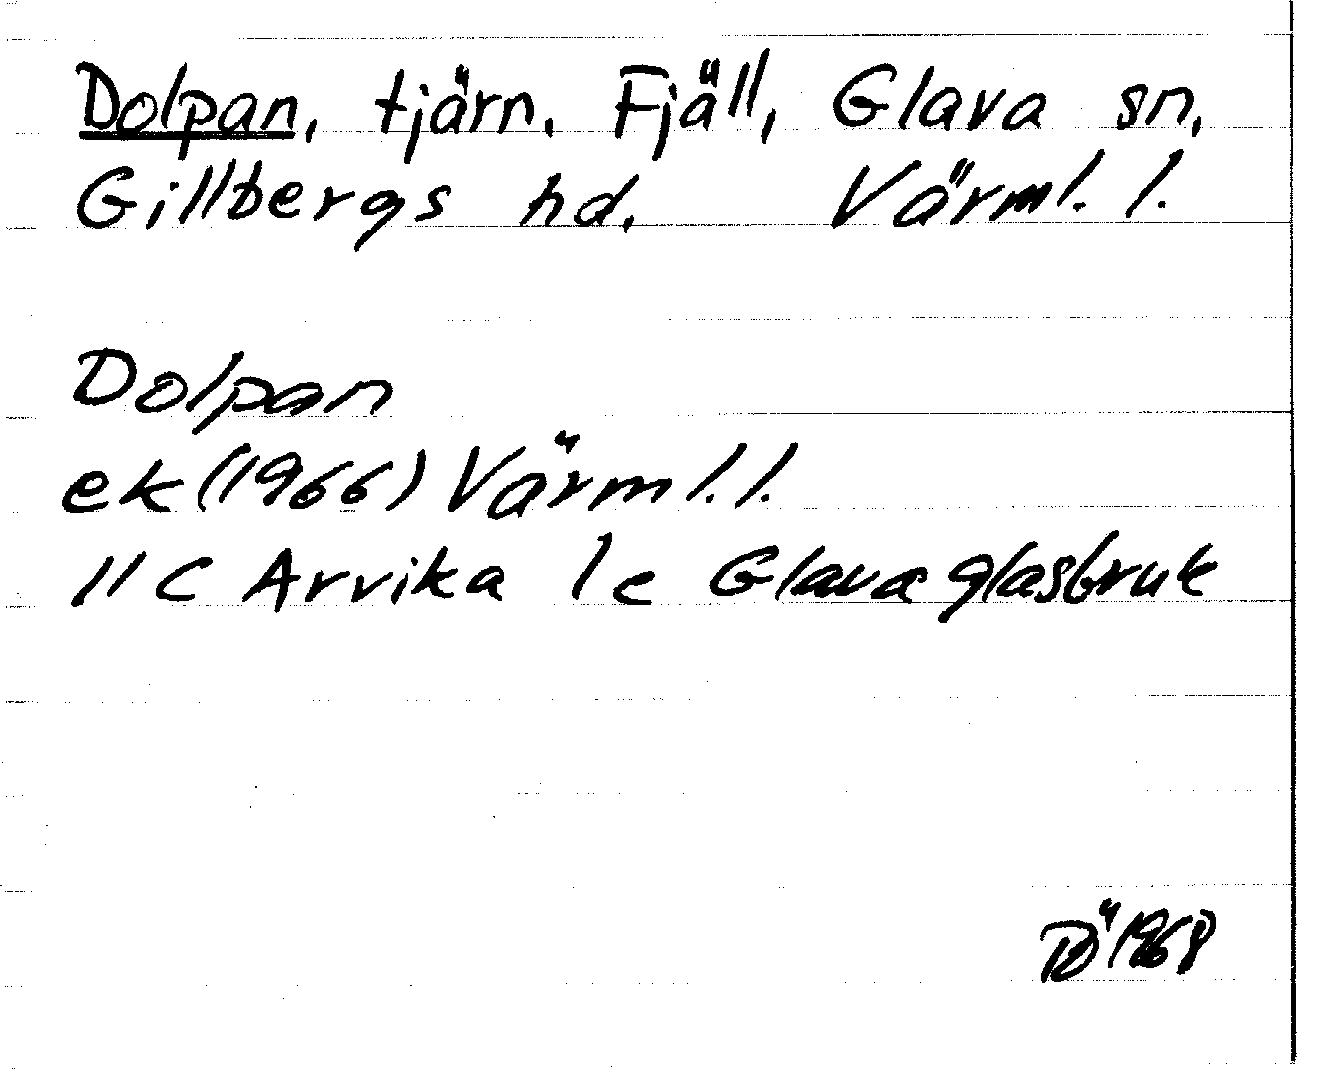 Dolpan, tjärn. Fjäll, Glava sn,
Gillbergs hd. Värml. l.
Dolpan
ek (1966) Värml. l.
11 C Arvika 1 c Glava glasbruk
1968